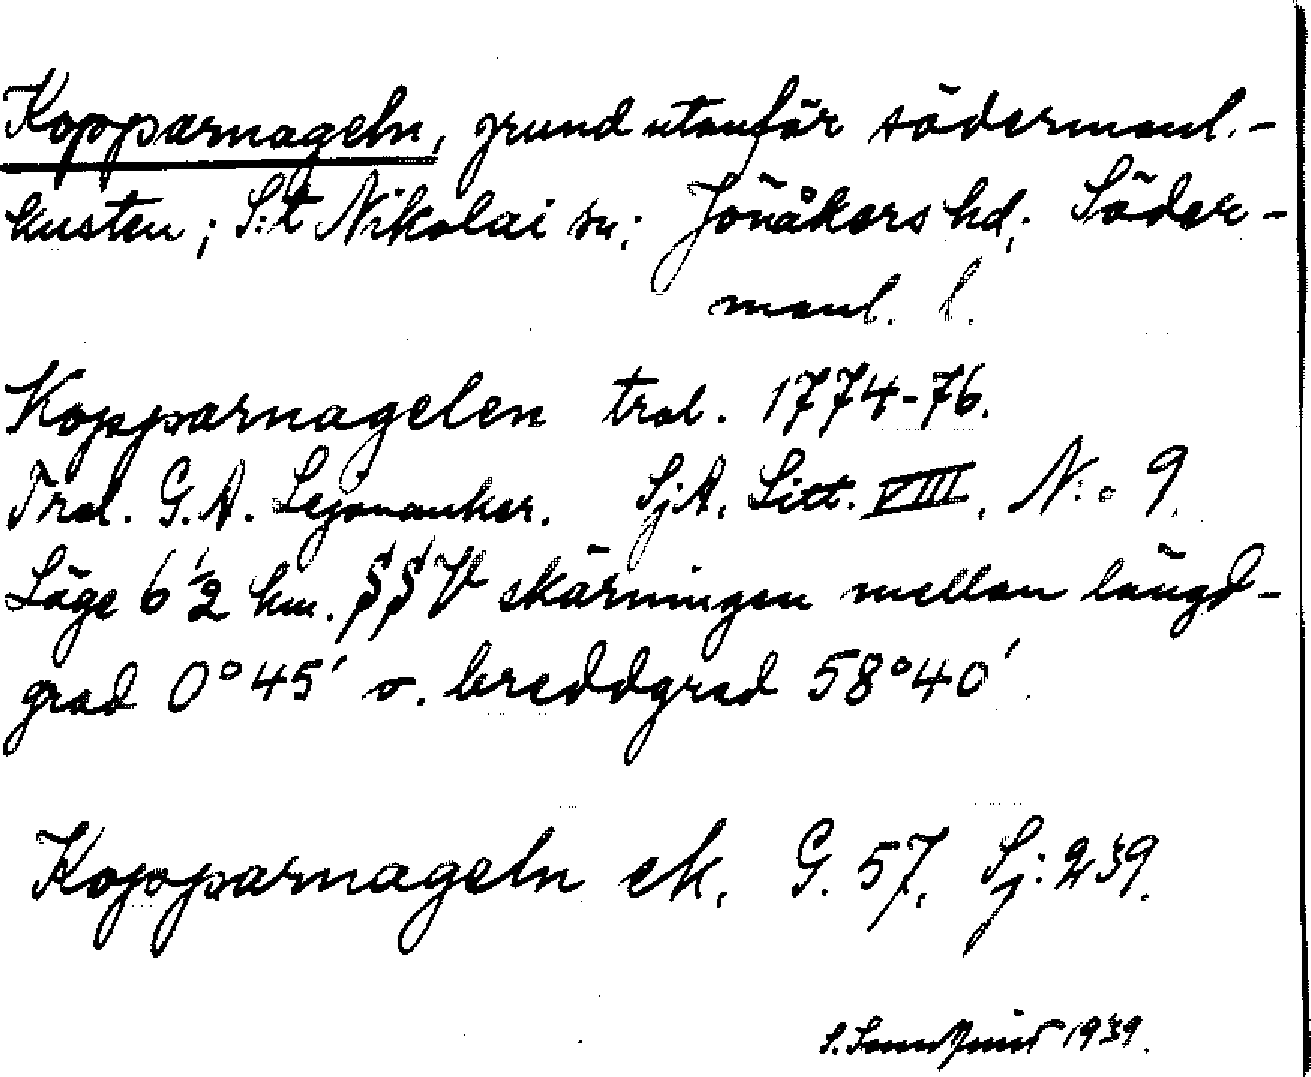 Kopparnageln, grund utanför södermanl.-
kusten; S:t Nikolai sn; Jönåkers hd; Söder-
manl. l.
Kopparnagelen tral. 1774-76.
Tral. G.A. Lejonanker. SjA. Litt. VIII. N:o 9.
Läge 6 1/2 km. SSV skärningen mellan längd-
grad 0°45' o. breddgrad 58°40'.
Kopparnageln ek. G. 57. Sj: 239.
1939.